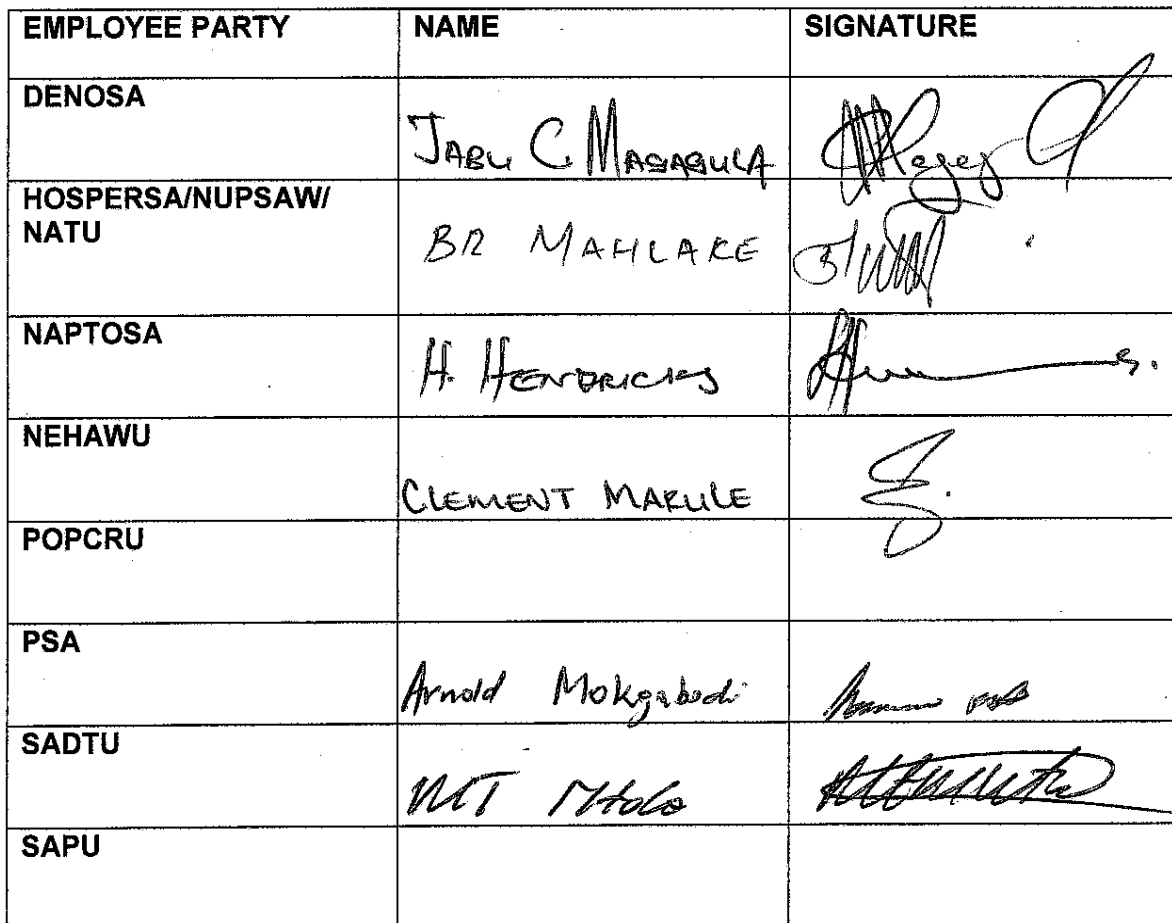 EMPLOYEE PARTY NAME SIGNATURE
DENOSA
JABU C MAGAGULA
HOSPERSA/NUPSAW/
NATU
BR MAHLAKE
NAPTOSA
H. HENDRICKS
NEHAWU
CLEMENT MARULE
POPCRU
PSA
Arnold Mokgabudi
SADTU
Mtolo
SAPU